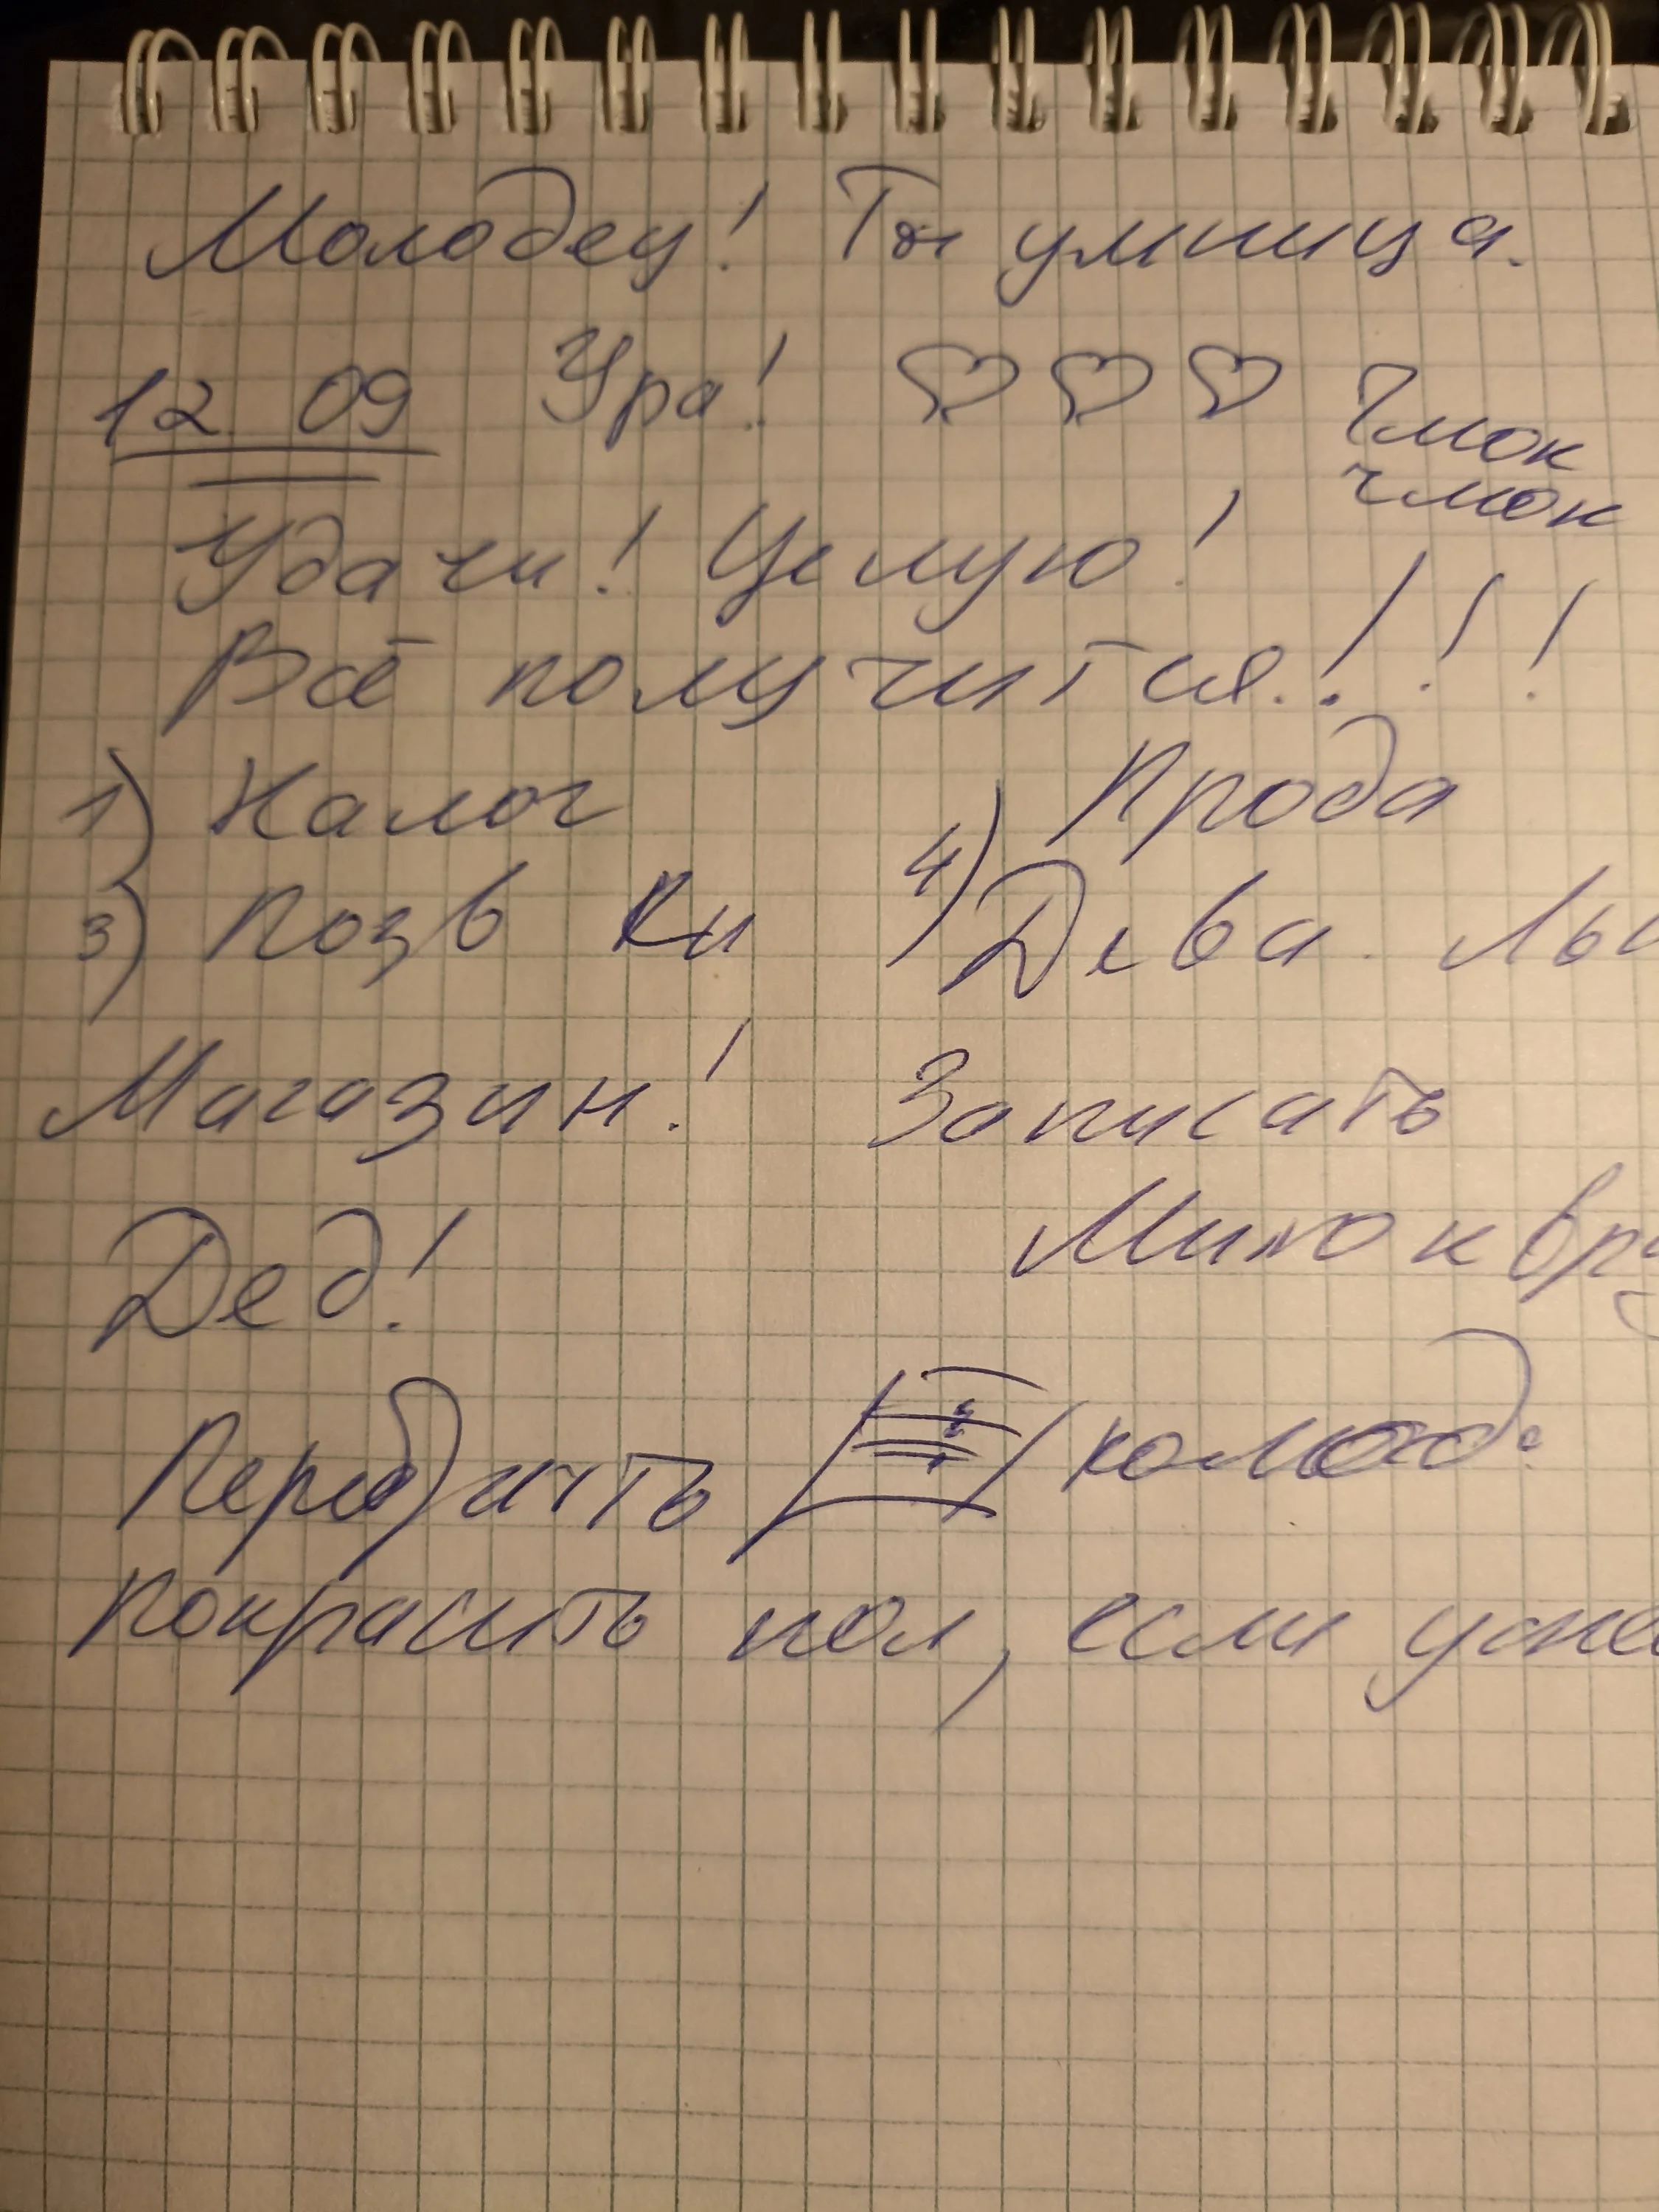 Молодец! Ты умница.
12 09 Ура! Чмок
чмок
Удачи! Целую!
Всё получится.!!!
1) Налог Прода
3) Позв Ки 4) Дева. Льв
Магазин! Записать
Мило к вр
Дед!
Перебить колод.
Покрасить пол, если успе